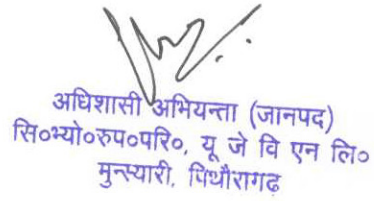 अधिशासी अभियन्ता (जानपद)
सि०भ्यो०रुप०परि०, यू जे वि एन लि०
मुन्स्यारी, पिथौरागढ़